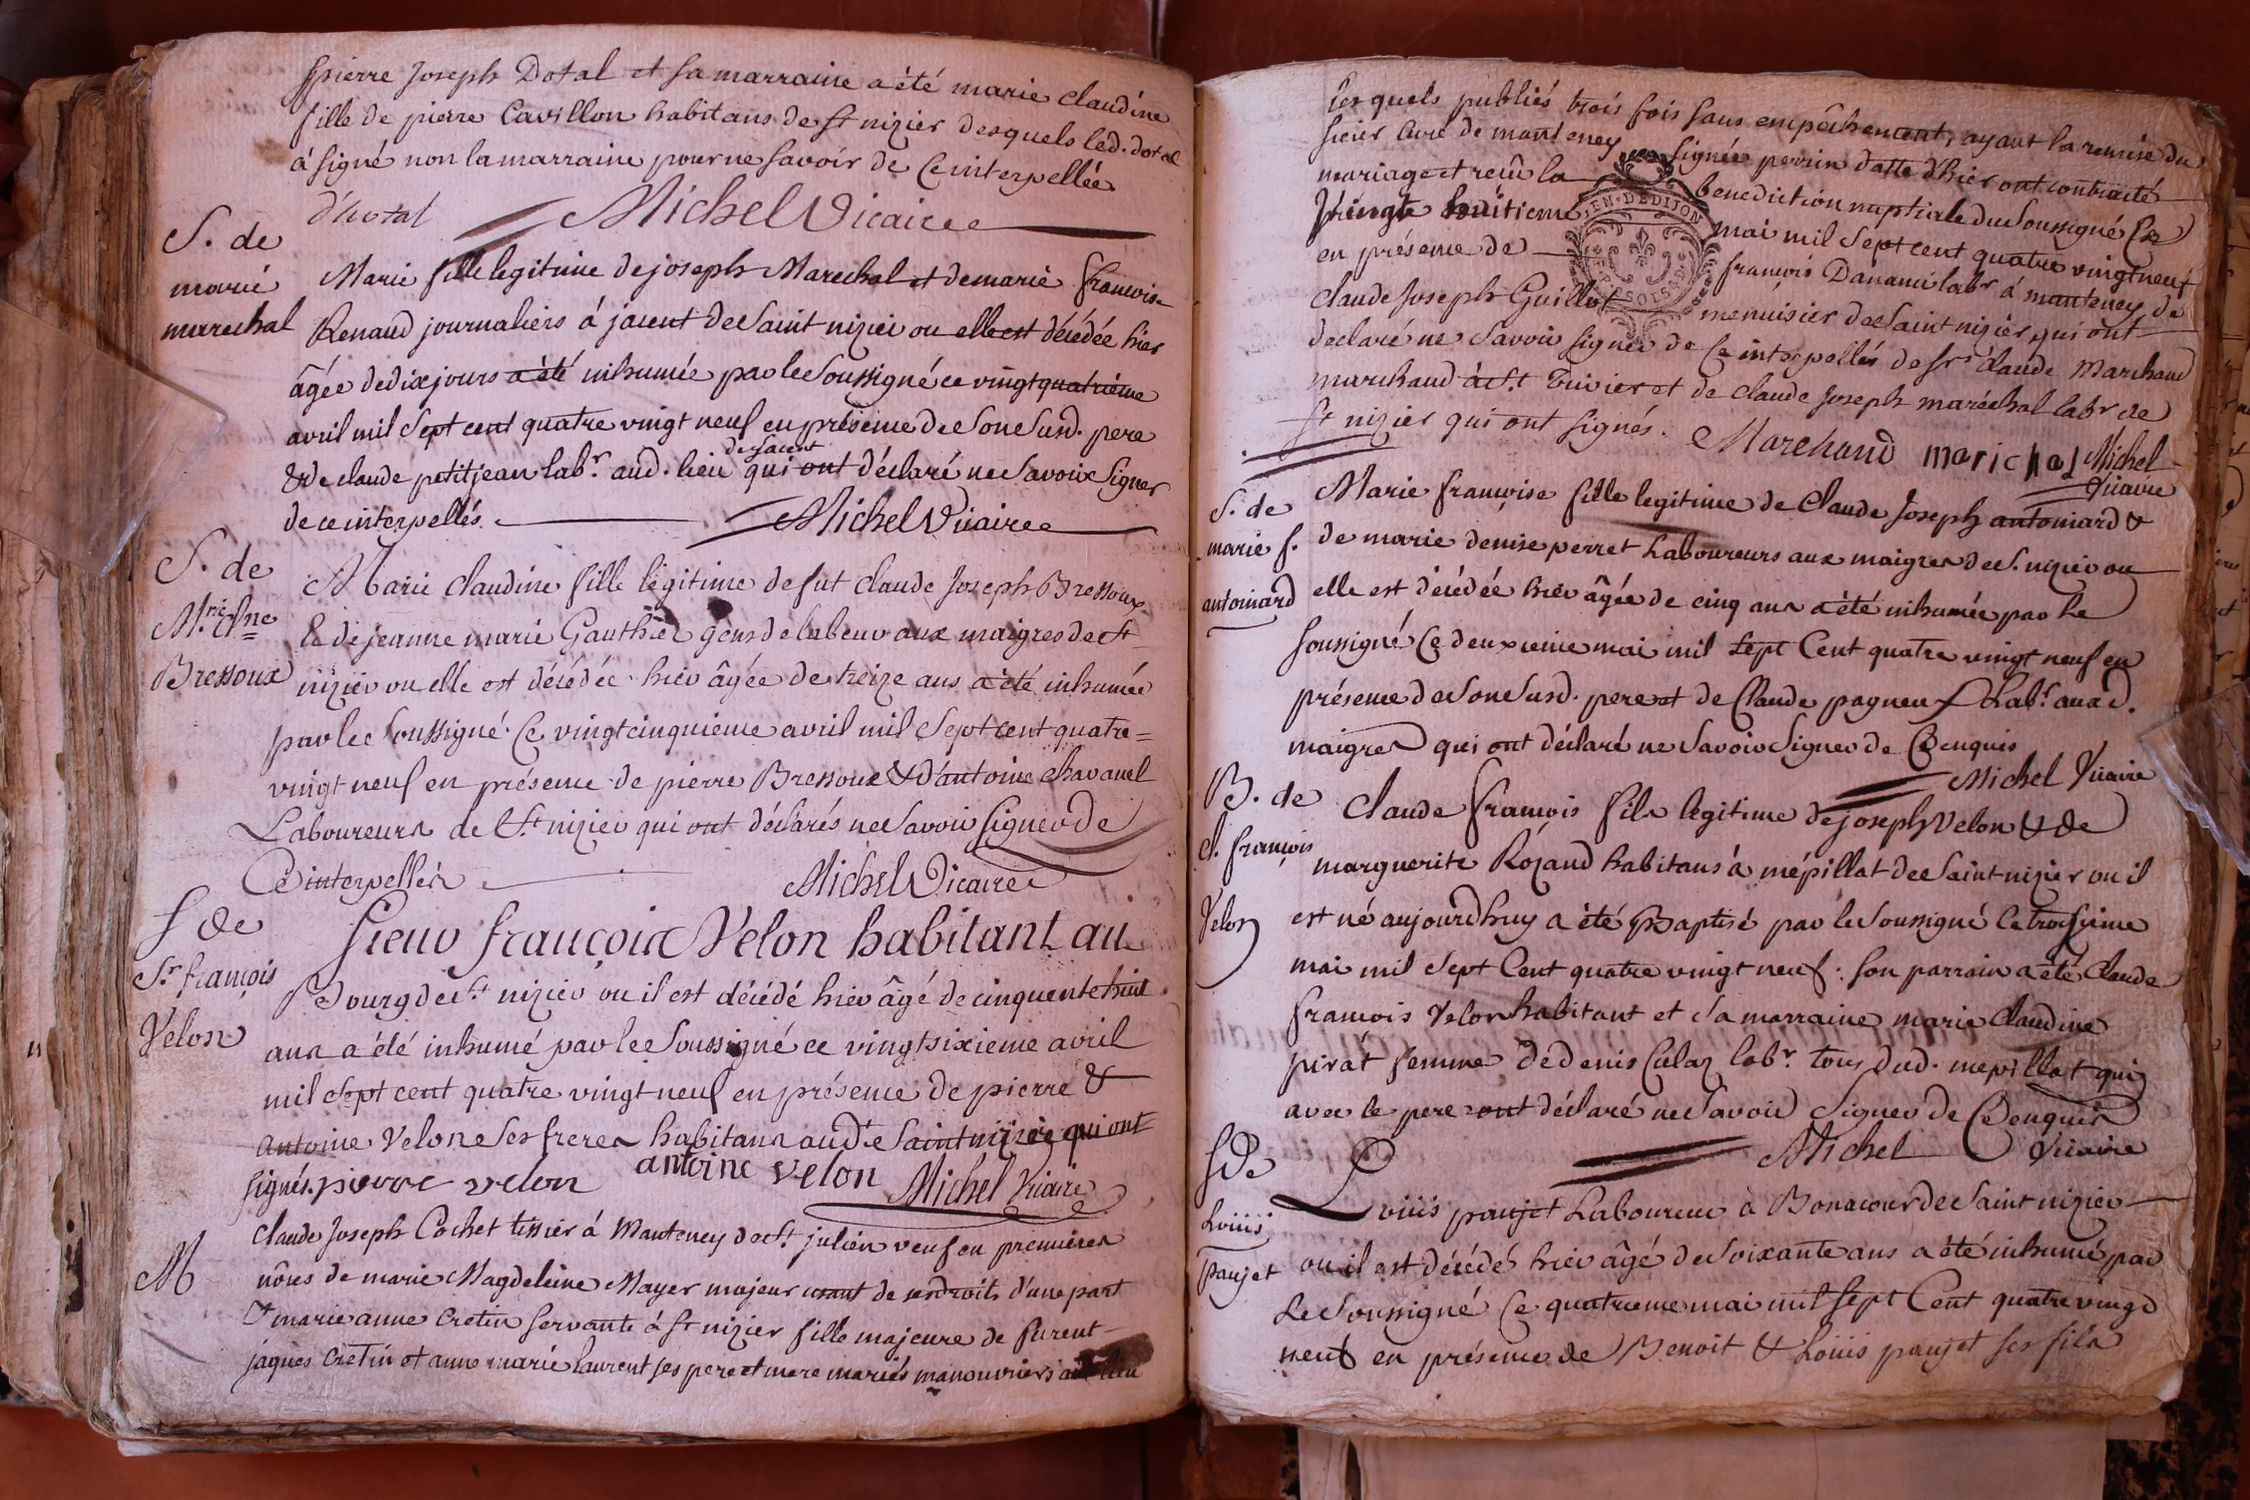 pierre Joseph Dotal et sa marraine a été marie claudine
fille de pierre Cavillon habitans de st nizier desquels led. dotal
à signé non la marraine pour ne savoir de ce interpellée
d'hotal Michel Vicaire
S. de
marie
marechal
Marie fille legitime de joseph Marechal et de marie francoise
Renaud journaliers á jaient de Saint nizier ou elle est décédée hier
âgée de dix jours a été inhumée par le soussigné ce vingt quatrième
avril mil sept cent quatre vingt neuf en présence de son susd. pere
& de claude petitjean labr. aud. lieu de jacent qui ont déclaré ne savoir signer
de ce interpellés. Michel Vicaire
S. de
M.rie Clne
Bressoux
Marie Claudine fille légitime de fut Claude Joseph Bressoux
& de jeanne marie Gauthier gens de labeur aux maigres de st
nizier ou elle est décédée hier âgée de treize ans a été inhumée
par le soussigné ce vingt cinquieme avril mil sept cent quatre=
vingt neuf en présence de pierre Bressoux & d'antoine chavanel
Laboureurs de St. nizier qui ont déclarés ne savoir signer de
Ce interpellés Michel Vicaire
S de
Sr. françois
Velon
Sieur françois Velon habitant au
Bourg de st. nizier ou il est décédé hier âgé de cinquante huit
ans a été inhumé par le soussigné ce vingt sixieme avril
mil sept cent quatre vingt neuf en présence de pierre &
antoine Velon ses freres habitans aud. Saint nizier qui ont
signés. pierre velon antoine velon Michel Vicaire
M
Claude Joseph Cochet tissier á Manteney de st. julien veuf en premieres
nôces de marie Magdeleine Mayer majeur usant de ses droits d'une part
& marie anne Cretin servante á st nizier fille majeure de furent
jaques Cretin et anne marie laurent ses pere et mere mariés manouvriers au lieu
lesquels publiés trois fois sans empêchement, ayant la remise du
sieur Curé de manteney signée perrin datte d'hier ont contracté
mariage et reçu la benediction nuptiale du soussigné Ce
vingt huitieme mai mil sept cent quatre vingt neuf
EN. DE DIJON
en présence de françois Dananci labr á manteney, de
Claude Joseph Guillot menuisier de Saint nizier, qui ont
declaré ne savoir signer de ce interpellés de sr. claude Marchand
marchand à st. Trivier et de claude joseph maréchal labr de
st nizier qui ont signés. Marchand marichal Michel
Vicaire
S. de
marie f.
antoinard
Marie françoise fille legitime de Claude Joseph antoniard &
de marie denise perret Laboureurs aux maigres de S. nizier ou
elle est décédée hier âgée de cinq ans a été inhumée par le
soussigné Ce deuxieme mai mil sept Cent quatre vingt neuf en
présence de son susd. pere et de Claude pagneux Labr. auxd.
maigres qui ont déclaré ne savoir signer de Ce enquis
Michel Vicaire
B. de
cl. françois
Velon
Claude françois fils legitime de joseph Velon & de
marguerite Rozand habitans á mépillat de Saint nizier ou il
est né aujourdhuy a été Baptisé par le soussigné Ce troisieme
mai mil sept Cent quatre vingt neuf: son parrain a été Claude
françois Velon habitant et sa marraine marie Claudine
pirat femme de denis Culaz labr. tous dud. mepillat qui
avec le pere ont déclaré ne savoir signer de Ce enquis
Michel Vicaire
S de
Loüis
paujet
Loüis paujet Laboureur à Bonacour de Saint nizier
ou il est décédé hier âgé de soixante ans a été inhumé par
Le soussigné Ce quatrieme mai mil sept Cent quatre vingt
neuf en présence de Benoit & Loüis paujet ses fils